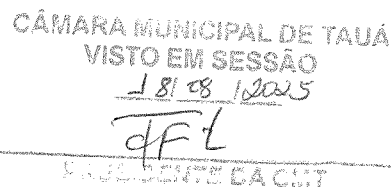 CÂMARA MUNICIPAL DE TAUÁ
VISTO EM SESSÃO
18/08/2025
PRESIDENTE DA CMT